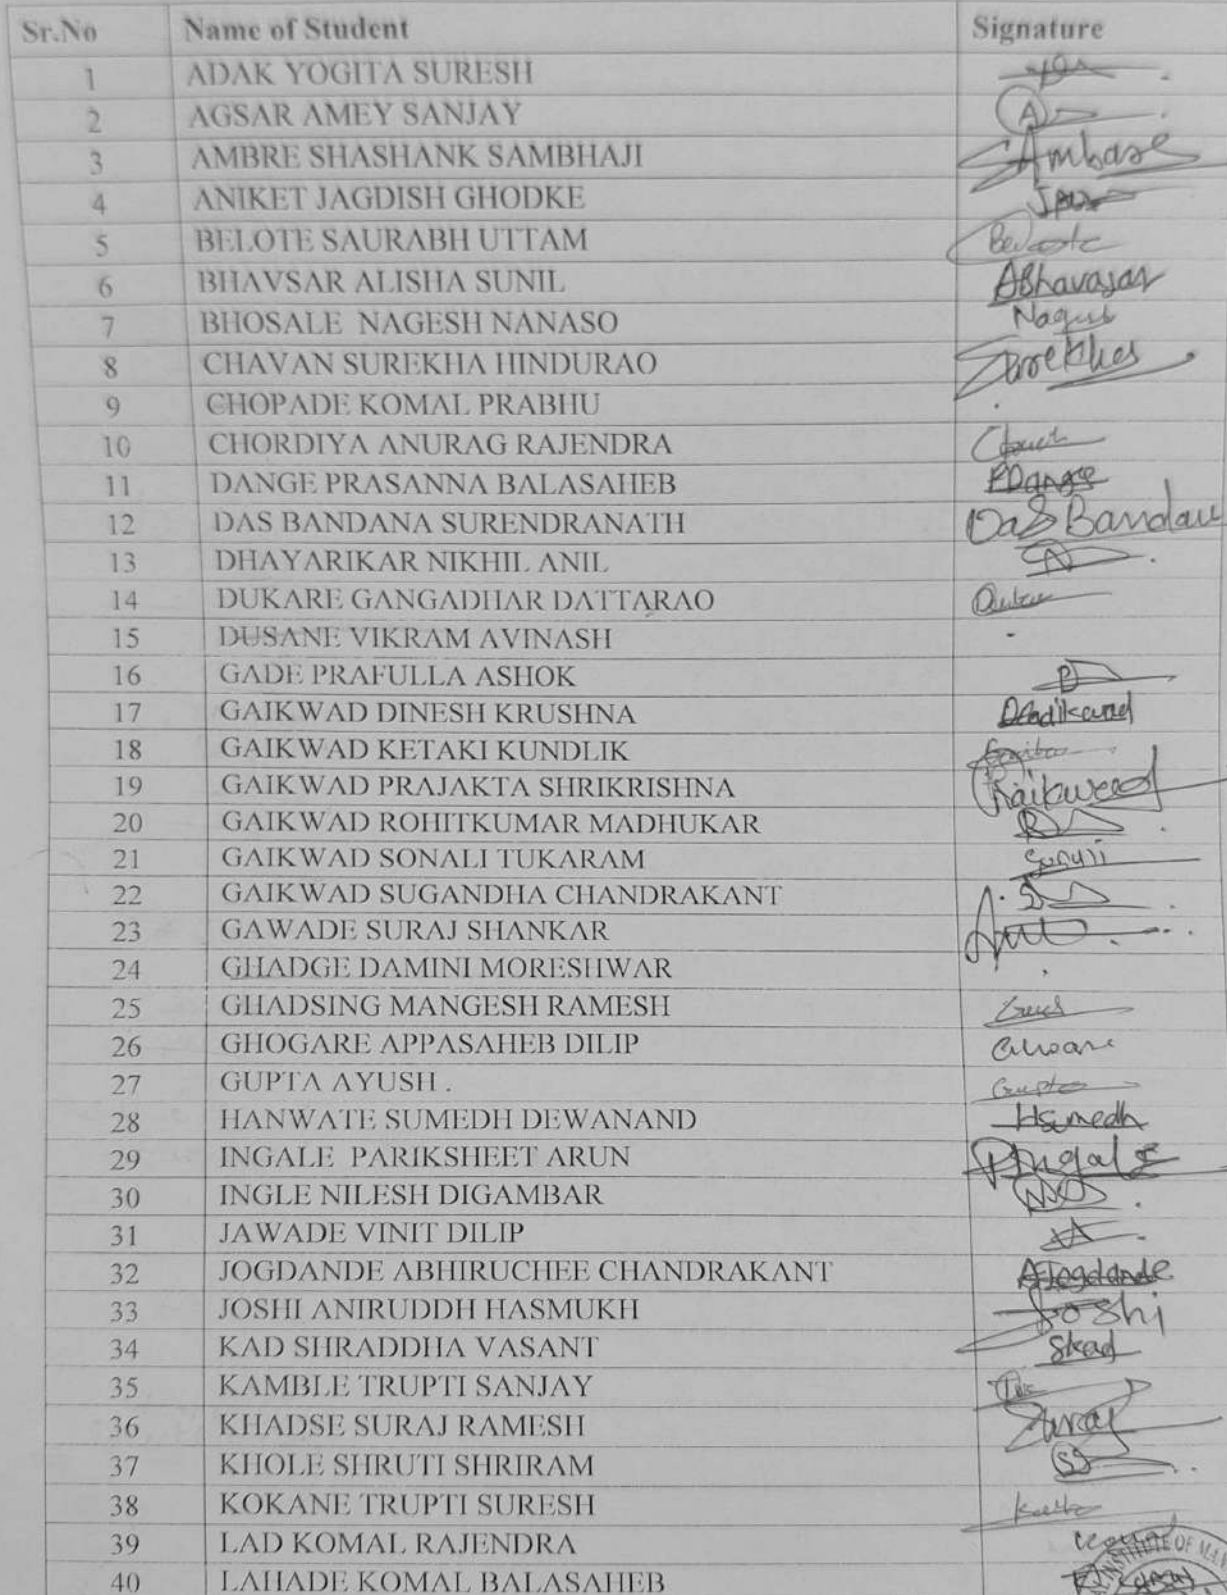 Sr.No Name of Student Signature
1 ADAK YOGITA SURESH
2 AGSAR AMEY SANJAY A
3 AMBRE SHASHANK SAMBHAJI SAmbare
4 ANIKET JAGDISH GHODKE
5 BELOTE SAURABH UTTAM
6 BHAVSAR ALISHA SUNIL ABhavasar
7 BHOSALE NAGESH NANASO Nagesh
8 CHAVAN SUREKHA HINDURAO Surekha
9 CHOPADE KOMAL PRABHU
10 CHORDIYA ANURAG RAJENDRA
11 DANGE PRASANNA BALASAHEB PDange
12 DAS BANDANA SURENDRANATH Das Bandan
13 DHAYARIKAR NIKHIL ANIL
14 DUKARE GANGADHAR DATTARAO
15 DUSANE VIKRAM AVINASH
16 GADE PRAFULLA ASHOK P
17 GAIKWAD DINESH KRUSHNA
18 GAIKWAD KETAKI KUNDLIK
19 GAIKWAD PRAJAKTA SHRIKRISHNA Gaikwad
20 GAIKWAD ROHITKUMAR MADHUKAR R
21 GAIKWAD SONALI TUKARAM
22 GAIKWAD SUGANDHA CHANDRAKANT S
23 GAWADE SURAJ SHANKAR
24 GHADGE DAMINI MORESHWAR
25 GHADSING MANGESH RAMESH
26 GHOGARE APPASAHEB DILIP
27 GUPTA AYUSH . Gupta
28 HANWATE SUMEDH DEWANAND HSumedh
29 INGALE PARIKSHEET ARUN PIngale
30 INGLE NILESH DIGAMBAR
31 JAWADE VINIT DILIP
32 JOGDANDE ABHIRUCHEE CHANDRAKANT AJogdande
33 JOSHI ANIRUDDH HASMUKH Joshi
34 KAD SHRADDHA VASANT Skad
35 KAMBLE TRUPTI SANJAY
36 KHADSE SURAJ RAMESH Suraj
37 KHOLE SHRUTI SHRIRAM SS
38 KOKANE TRUPTI SURESH
39 LAD KOMAL RAJENDRA
40 LAHADE KOMAL BALASAHEB
INSTITUTE OF